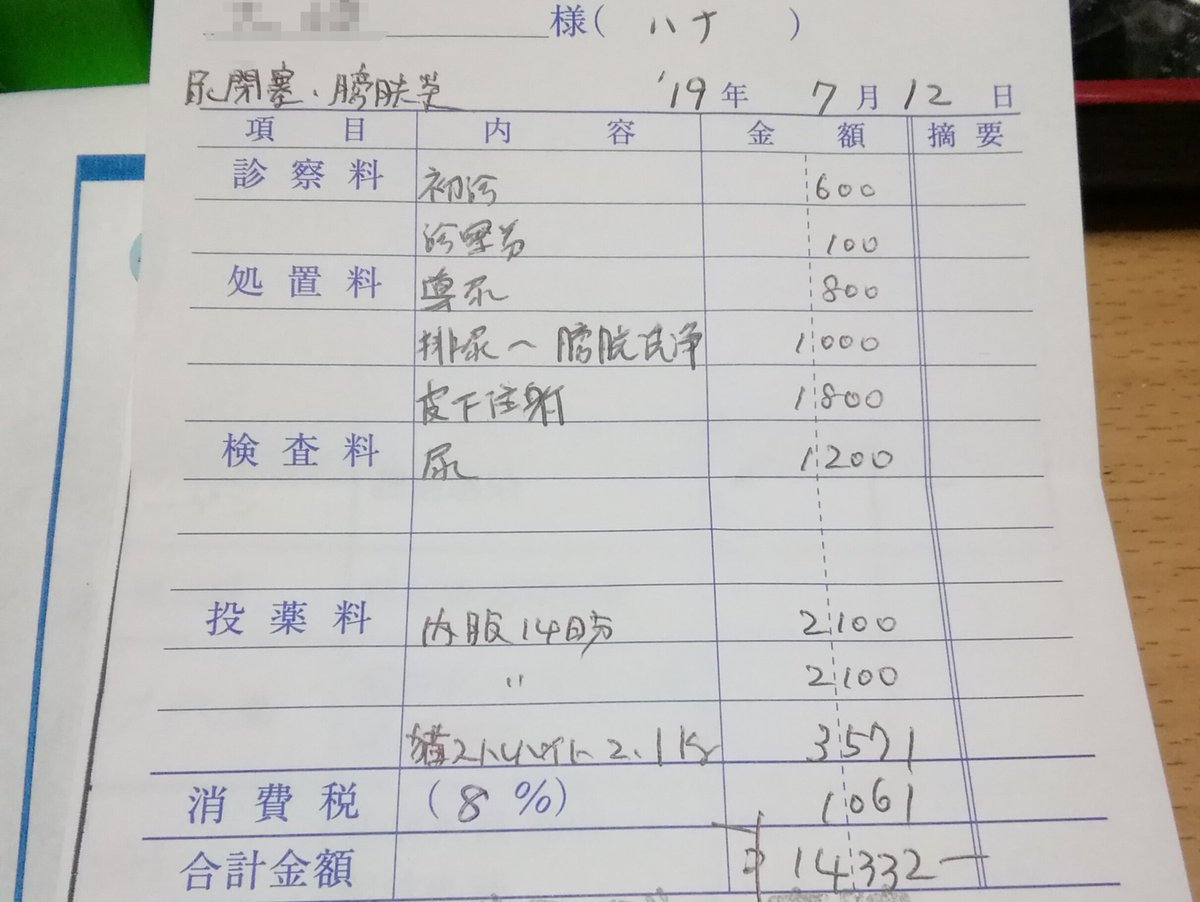 様( ハナ )
尿閉塞・膀胱炎 '19年 7月12日
項目 内容 金額 摘要
診察料 初診 600
診察券 100
処置料 導尿 800
排尿〜膀胱洗浄 1000
皮下注射 1800
検査料 尿 1200
投薬料 内服14日分 2100
〃 2100
猫ストルバイト2.1Kg 3571
消費税 (8%) 1061
合計金額 14332―